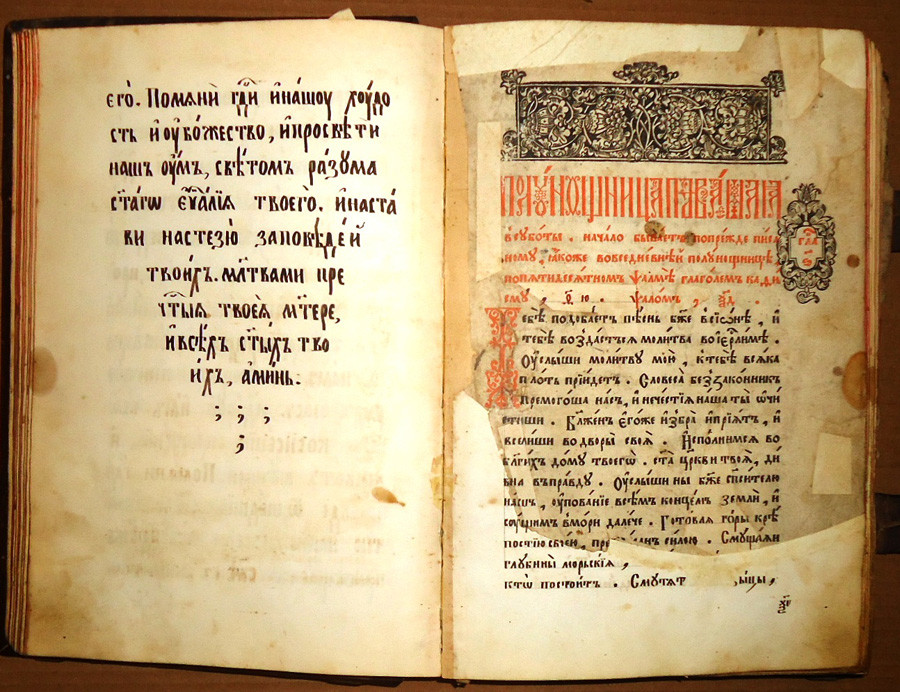 его̀. Помѧнѝ гдⷭ҇и и҆на́шꙋ хꙋдо
сть и҆оу҆бо́жество, и҆просвѣти
нашъ оу҆́мъ, свѣ́томъ ра́зꙋма
ст҃а́гѡ еѵⷢ҇а́лїѧ твоего̀. и҆наста́
ви настезю̀ за́повѣде́й
твои́хъ. мл҃твами пре
чтⷭ҇ыѧ твоеѧ̀ мт҃ере,
и҆всѣ́хъ ст҃ы́хъ тво
и́хъ, а҆ми́нь.
; ; ;
;
ПОЛꙊ́НО́ЩНИЦА
всꙋбо́ты . нача́ло быва́етъ попре́жде писа
ному, ꙗ҆́коже вовседне́внѣй полꙋ́нощницѣ,
попѧтьдесѧ́тномъ ѱалмѣ̀ глаго́лемъ каѳи́
сму, ѱало́мъ, ѯд҃.
гла
Тебѣ̀ подоба́етъ пѣ́снь бж҃е всїѡ́нѣ, и҆
тебѣ̀ возда́стьсѧ моли́тва воїер҇ли́мѣ .
Оу҆слы́ши моли́твꙋ мою̀, ктебѣ̀ всѧ́ка
пло́ть прїи́детъ . Словеса̀ беззако́нникъ
премого́ша на́съ, и҆ нече́стїѧ на́ша ты̀ ѡ҆чи́
стиши . Бл҃же́нъ є҆го́же и҆збра̀ и҆прїѧ́тъ, и҆
всели́ши водворы̀ своѧ̀ . И҆спо́лнимсѧ во
бл҃ги́хъ до́мꙋ твоегѡ̀ . ст҃а̀ цр҃кви твоѧ̀, ди́
вна въпра́вдꙋ . Оу҆слы́ши ны̀ бж҃е сп҃си́телю
на́шъ, оу҆пова́нїе всѣ́мъ конце́мъ землѝ, и҆
сꙋ́щимъ вмо́ри дале́че . Гото́ваѧ го́ры крѣ́
постїю свое́ю, си́лою . Смꙋща́ѧй
глꙋбины̀ мо́рьскїѧ ,
кто̀ постои́тъ . Смꙋтѧ́т ꙗзы́цы ,